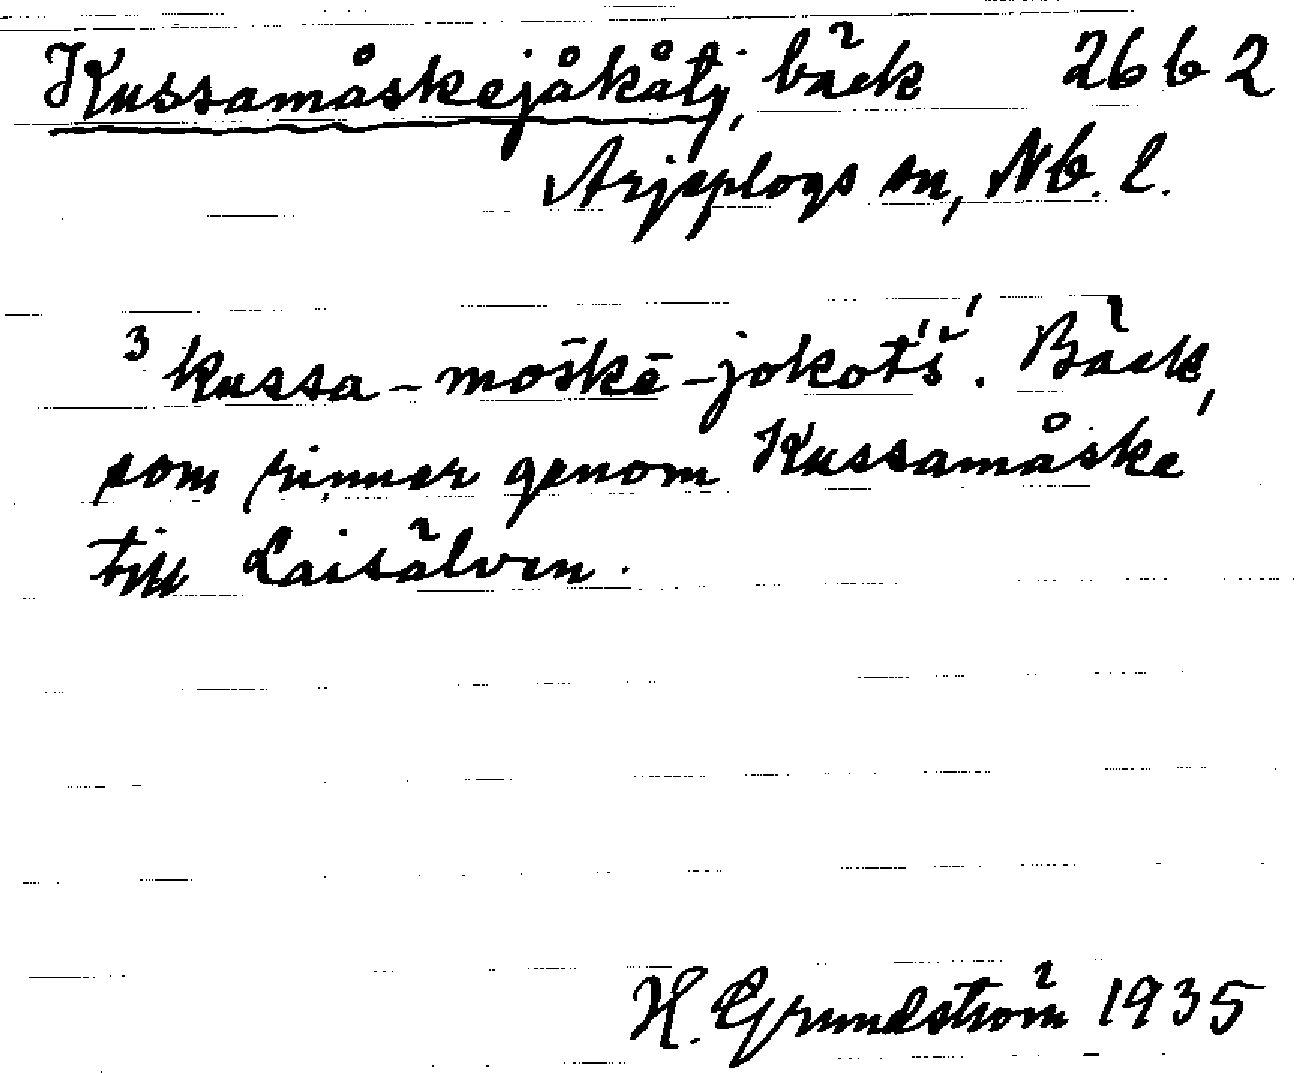 Kussamåskejåkåtj, bäck 2662
Arjeplogs sn, Nb. l.
³ kussa-mos̄kē-jokot́š́. Bäck,
som rinner genom Kussamåske
till Laisälven.
H. Grundström 1935